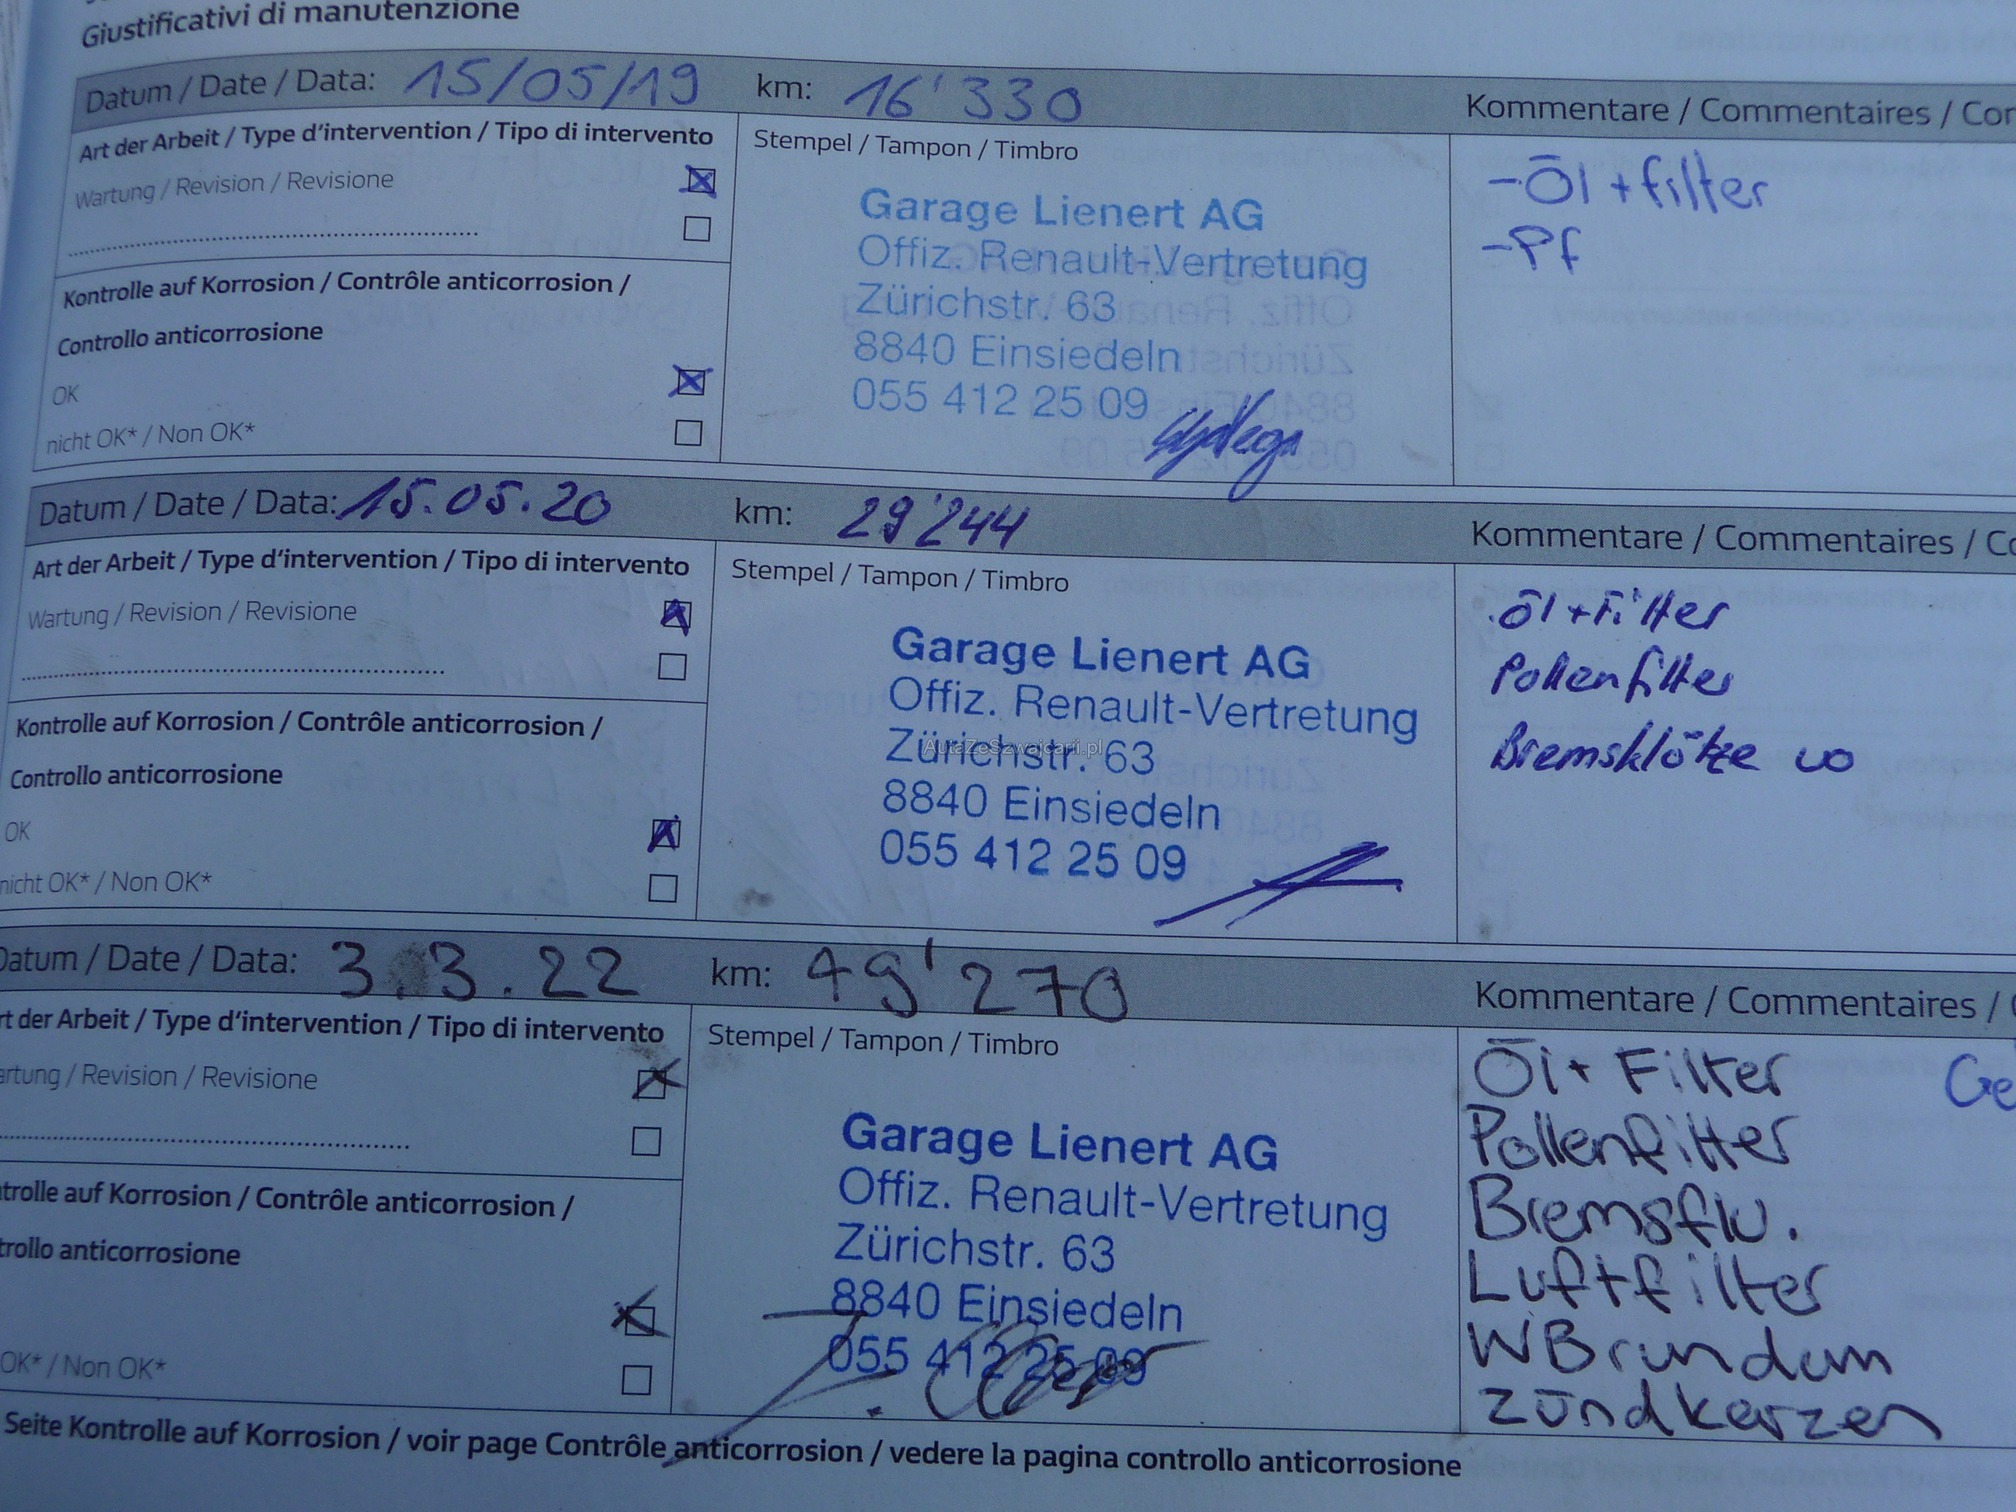 Giustificativi di manutenzione
Datum / Date / Data: 15/05/19 km: 16'330 Kommentare / Commentaires /
Art der Arbeit / Type d'intervention / Tipo di intervento
Stempel / Tampon / Timbro
Wartung / Revision / Revisione
Kontrolle auf Korrosion / Contrôle anticorrosion /
Controllo anticorrosione
OK
nicht OK* / Non OK*
Garage Lienert AG
Offiz. Renault-Vertretung
Zürichstr. 63
8840 Einsiedeln
055 412 25 09
-Öl + filter
-Pf
Datum / Date / Data: 15.05.20 km: 29'244 Kommentare / Commentaires /
Art der Arbeit / Type d'intervention / Tipo di intervento
Stempel / Tampon / Timbro
Wartung / Revision / Revisione
Kontrolle auf Korrosion / Contrôle anticorrosion /
Controllo anticorrosione
OK
nicht OK* / Non OK*
Garage Lienert AG
Offiz. Renault-Vertretung
Zürichstr. 63
AutaZeSzwajcarii.pl
8840 Einsiedeln
055 412 25 09
Öl + Filter
Pollenfilter
Bremsklötze vo
Datum / Date / Data: 3.3.22 km: 49'270 Kommentare / Commentaires /
rt der Arbeit / Type d'intervention / Tipo di intervento
Stempel / Tampon / Timbro
artung / Revision / Revisione
trolle auf Korrosion / Contrôle anticorrosion /
trollo anticorrosione
OK* / Non OK*
Garage Lienert AG
Offiz. Renault-Vertretung
Zürichstr. 63
8840 Einsiedeln
055 412 25 09
Öl + Filter Ge
Pollenfilter
Bremsflu.
Luftfilter
WB rundum
Zündkerzen
Seite Kontrolle auf Korrosion / voir page Contrôle anticorrosion / vedere la pagina controllo anticorrosione